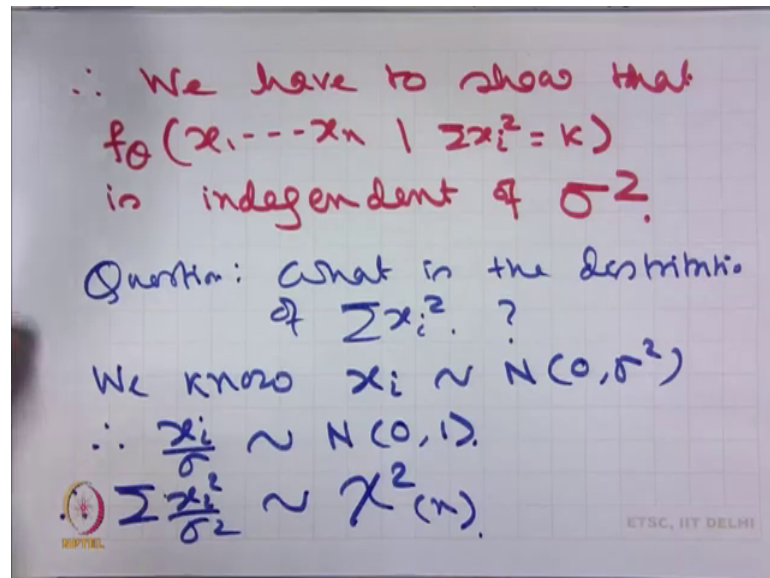 ∴ We have to show that
fθ (x₁ --- xₙ | Σxᵢ² = K)
is independent of σ².
Question: What is the distributio
of Σxᵢ². ?
We know xᵢ ~ N(0, σ²)
∴ xᵢ/σ ~ N(0, 1).
Σ xᵢ²/σ² ~ χ²(n).
NPTEL
ETSC, IIT DELHI